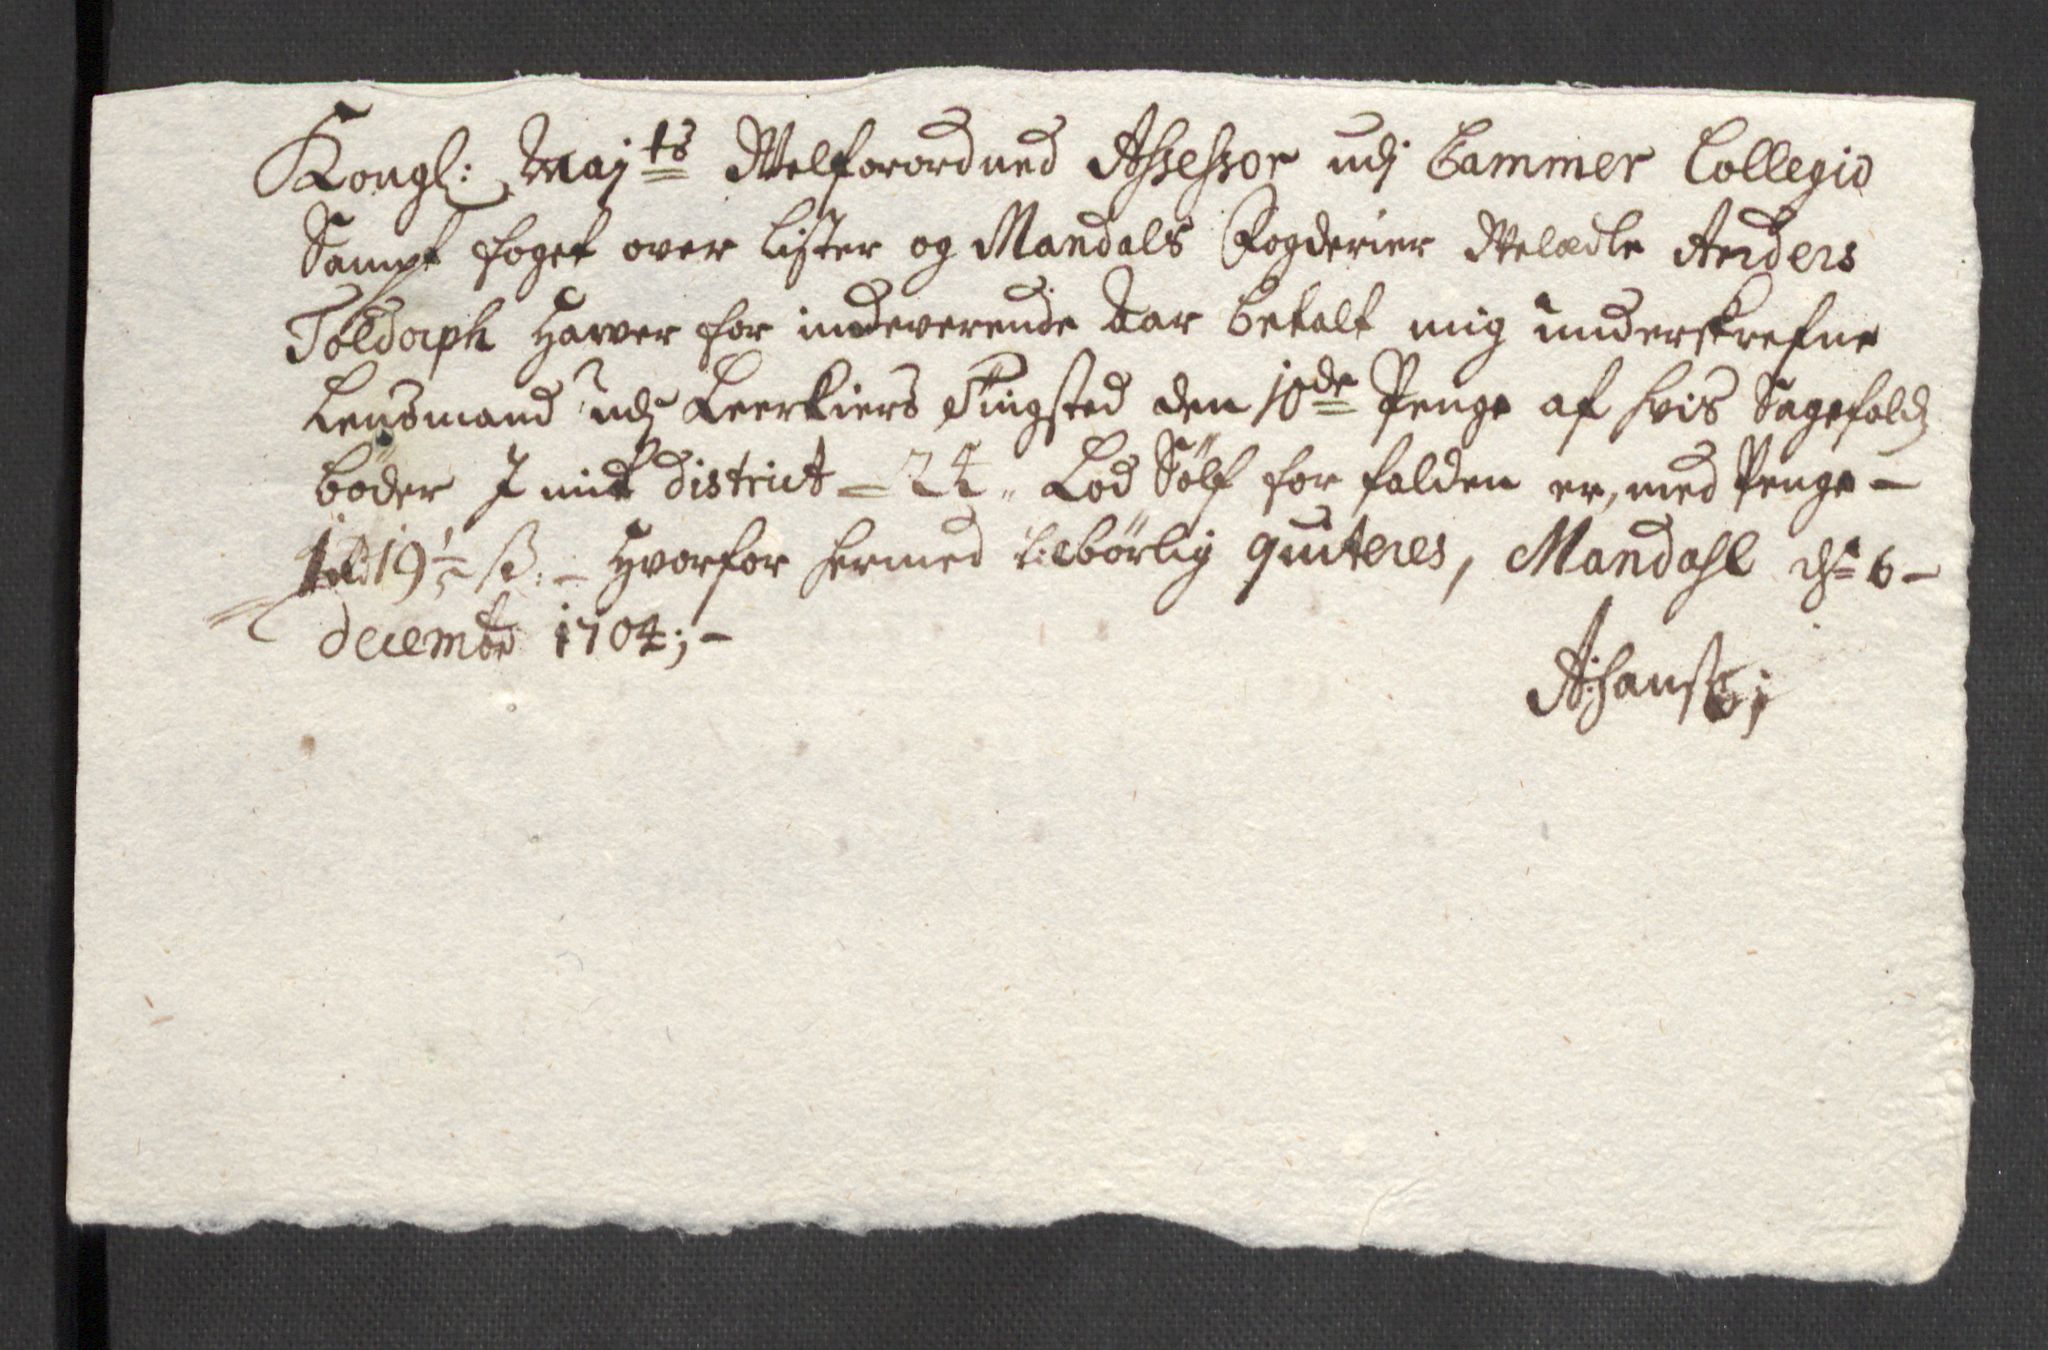 Kongl: Maj<sup>ts</sup> Welforordned Assessor udj Cammer Collegio
Sampt foget over Lister og Mandals Fogderier Welædle Anders
Toldorph Hawer for indeverende Aar betalt mig underskrefne
Lensmand udj Leerkiers Tingsted den 10de Penge af hvis Sagefalds
bøder J mit district – 24 „ Lod Sølf for falden er, med Penge –
1 rd 19 1/5 ß: – Hvorfor hermed tilbørlig quiteres, Mandahl ds: 6 –
decembr 1704; –
AHansß;